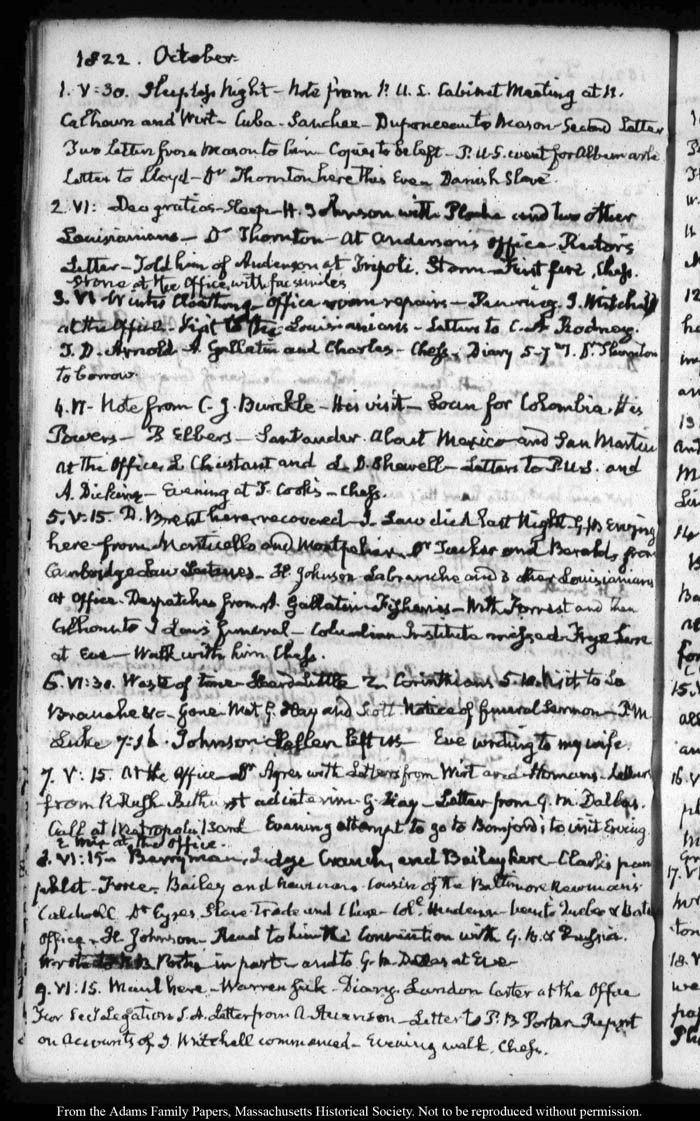 1822. October.
1. V:30. Sleepless Night - Note from P. U. S. Cabinet Meeting at
Calhoun and Wirt - Cuba - Sanchez - Duponceau to Mason - Second Letter
Two Letters from Mason to him Copies to be left - P. U. S. went for Albemarle
Letter to Lloyd - Dr Thornton here this Even Danish Slave
2. VI: Deo gratias - Sleep - H. Johnson with Plauche and two other
Louisianians - Dr Thornton - At Anderson's office - Rector's
Letter - Told him of Anderson at Tripoli. Storm - First fire, Chess.
Stone at the Office, with facsimiles
3. VI - Winter Cloathing - Office room repairs - J. Mitchell
at the Office - Visit to the Louisianians - Letters to C. A Rodney.
T. D. Arnold A. Gallatin and Charles - Chess, Diary 5-7 Dr Thornton
to borrow
4. VI - Note from C. J. Burckle - His visit - Loan for Colombia. His
Powers - B Elbers - Santander. About Mexico and San Martin
at the Office, L Chiestant and L. D. Shewell - Letters to P.U.S. and
A. Dickins - Evening at T. Cook's - Chess.
5. V:15. D. Brent here, recovered - J Law died last Night. G. W. Erving
here from Monticello and Montpelier. St G Tucker and from
Cambridge Law Lectures - H. Johnson Labranche and 3 other Louisianians
at Office. Despatches from A. Gallatin - Fisheries - With Forrest and then
Calhoun to J Law's funeral - Columbian Institute missed - Frye here
at Eve - Walk with him Chess.
6. VI:30. Waste of time - Heard Little 2 Corinthians 5.10. Visit to La
Branche &c - Gone - Met G. Hay and Scott Notice of funeral Sermon - P.M.
Luke 7:16. Johnson Hellen left us Eve writing to my wife.
7. V:15. At the Office - Dr Ayres with Letters from Wirt and Homans - Letters
from R Rush Bathurst ad interim G. Hay - Letter from G. M. Dallas.
Call at Metropolis Bank Evening attempt to go to Bomford's to visit Erving
E Wyer at the Office.
8. VI:15 - Berryman, Judge Cranch, and Bailey here - Clark's pam
phlet - Force - Bailey and Newman cousin of the Baltimore Newman's
Caldwell Dr Eyres Slave Trade and - Col. Henderson here to Tucker &
Office - H Johnson - Read to him the Convention with G. B. & Russia.
Wrote to P. B Porter in part - and to G. M. Dallas at Eve -
9. VI:15. Maul here - Warren sick - Diary. Landon Carter at the Office
For Secy Legation S. A. Letter from A. Stevenson - Letter to P. B Porter Report
on Accounts of J. Mitchell commenced - Evening walk. Chess.
From the Adams Family Papers, Massachusetts Historical Society. Not to be reproduced without permission.